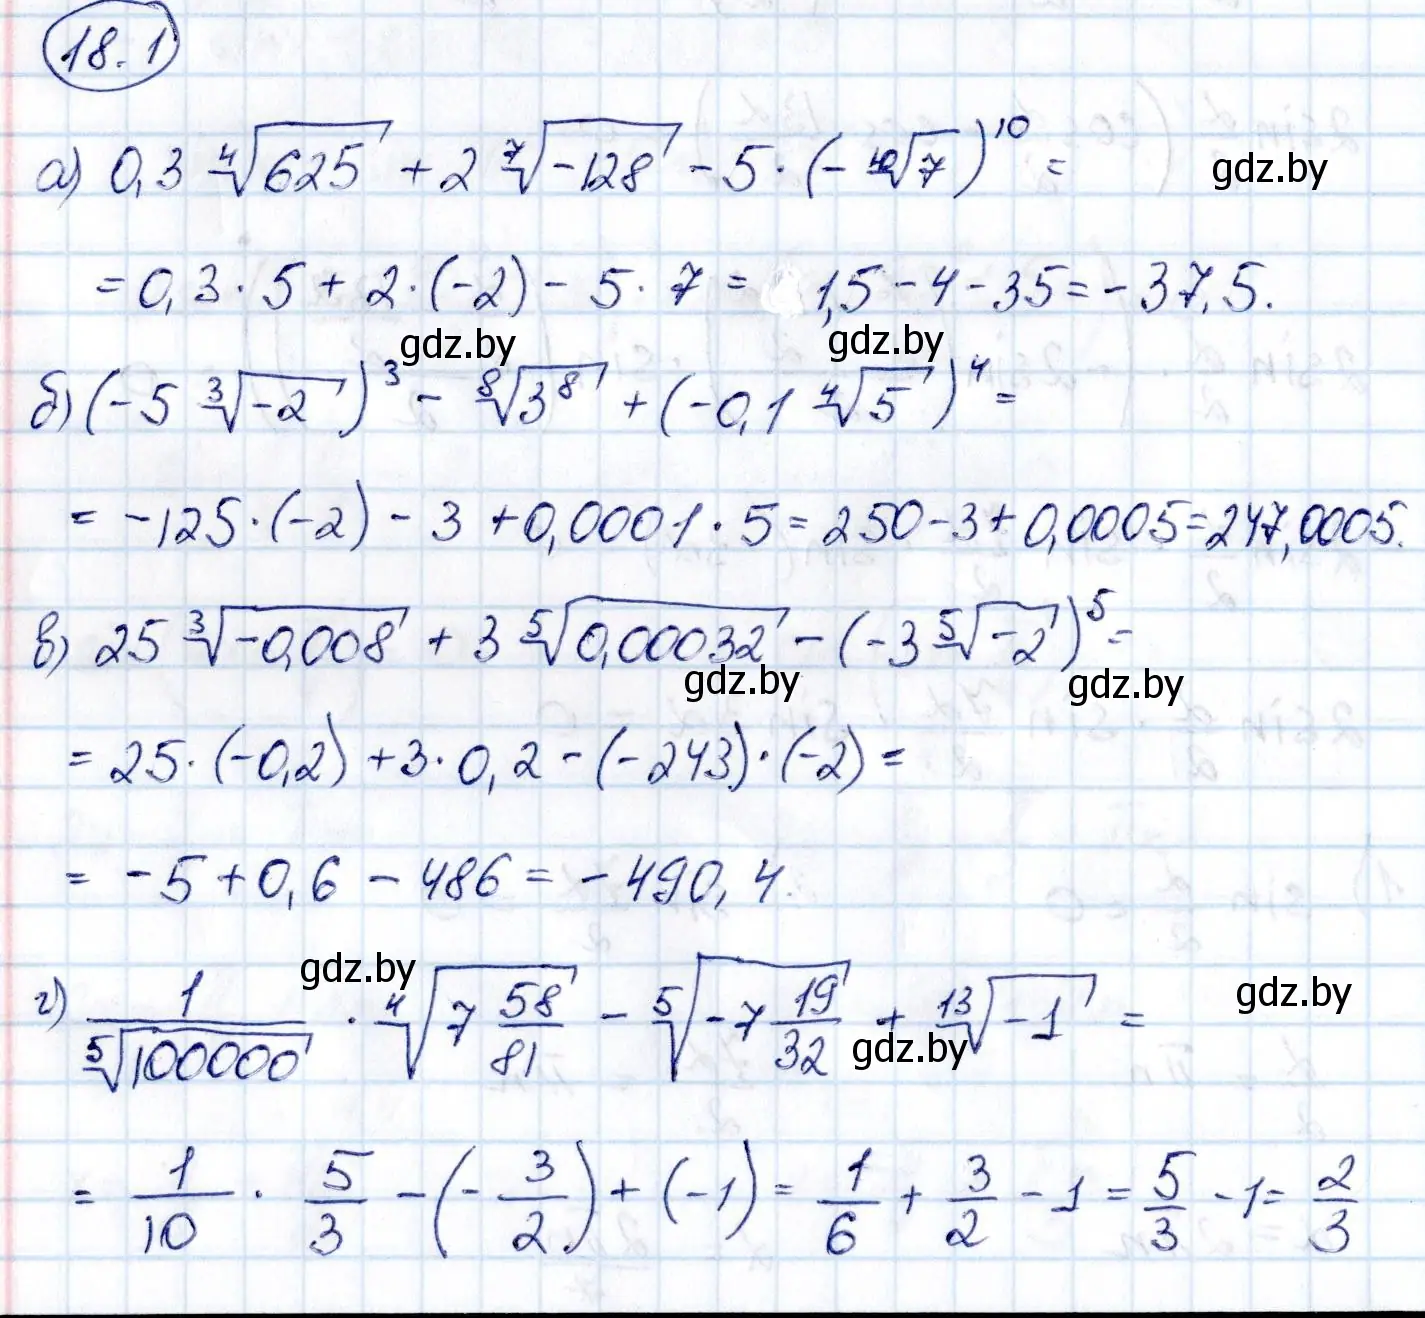 18.1
а) 0,3 ⁴√625 + 2 ⁷√-128 - 5·(- ¹⁰√7)¹⁰ =
gdz.by
= 0,3·5 + 2·(-2) - 5·7 = 1,5 - 4 - 35 = -37,5.
gdz.by gdz.by
б) (-5 ³√-2)³ - ⁸√3⁸ + (-0,1 ⁴√5)⁴ =
= -125·(-2) - 3 + 0,0001·5 = 250 - 3 + 0,0005 = 247,0005.
в) 25 ³√-0,008 + 3 ⁵√0,00032 - (-3 ⁵√-2)⁵ =
gdz.by gdz.by
= 25·(-0,2) + 3·0,2 - (-243)·(-2) =
= -5 + 0,6 - 486 = -490,4.
gdz.by gdz.by
г) 1/⁵√100000 · ⁴√(7 58/81) - ⁵√(-7 19/32) + ¹³√-1 =
gdz.by
= 1/10 · 5/3 - (-3/2) + (-1) = 1/6 + 3/2 - 1 = 5/3 - 1 = 2/3